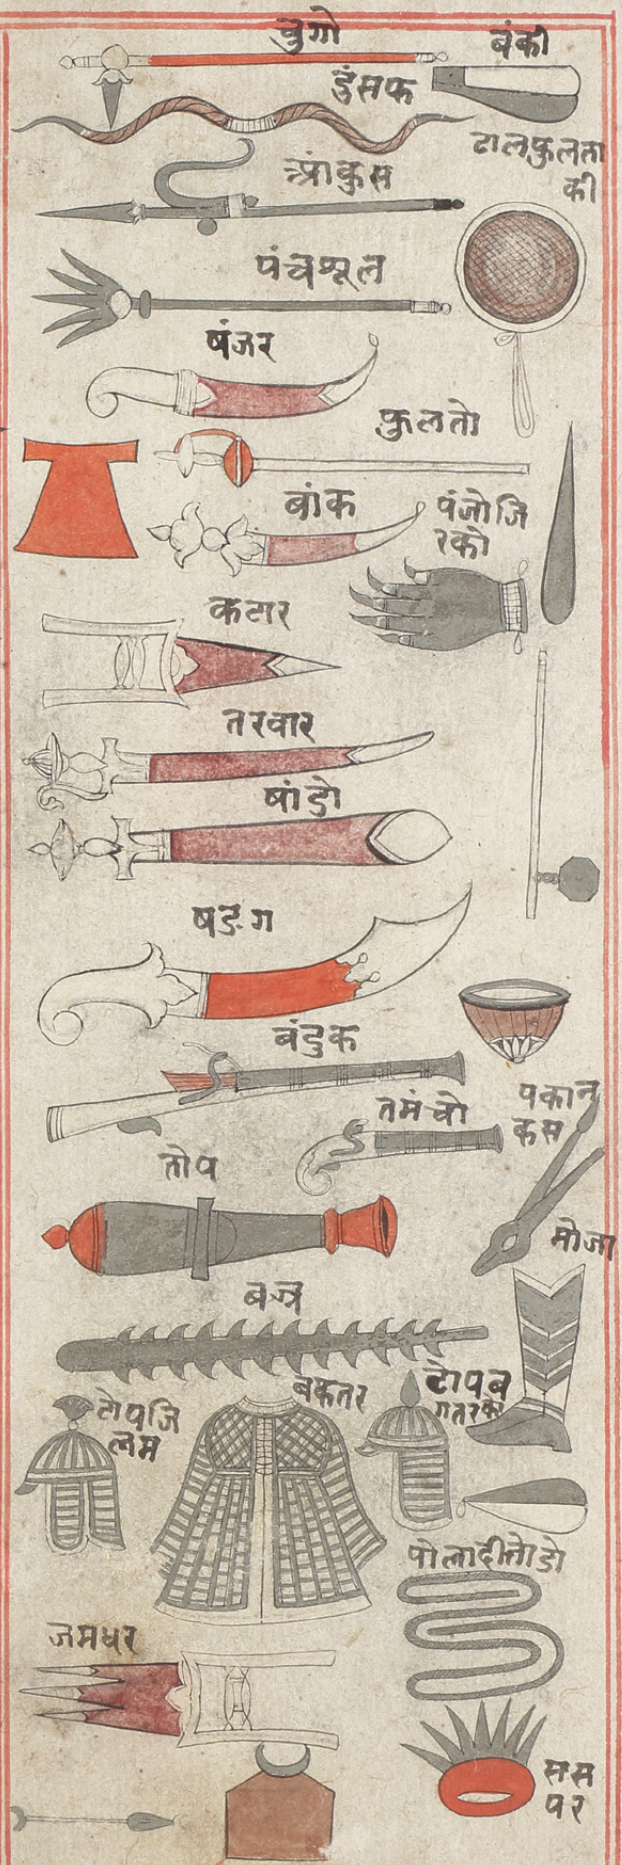 चुगो
बंकी
डुंसफ
ढालफुलता
की
आंकुस
पंचशूल
षंजर
फुलतो
बांक
पंजोजि
रको
कटार
तरवार
षांडो
षडग
बंदुक
तमंचो
पकान
कस
तोप
मोजा
बज्र
बकतर
टोपजि
लम
टोपब
गतरको
पोलादीतोडो
जमधर
सस
पर